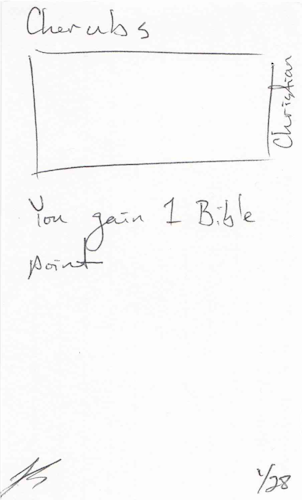 Cherubs
Christian
You gain 1 Bible
point
1/28